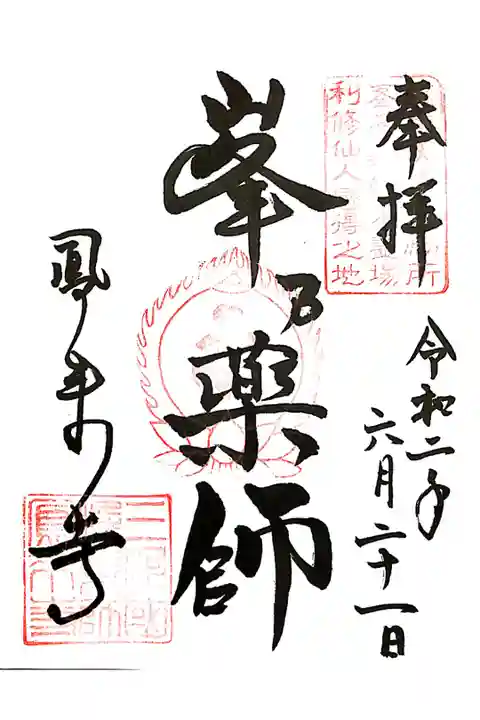 奉拝
令和二年
六月二十一日
峯乃薬師
鳳来寺
利修仙人
之地